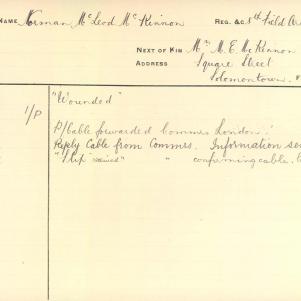 NAME Norman McLeod McKinnon REG. &C. 5th Field
NEXT OF KIN Mrs M. E. McKinnon
ADDRESS Square Street
Solomontown.
"Wounded"
1/P P/Cable forwarded Commrs London.
Reply Cable from Commrs. Information
"Slip" " confirming cable.